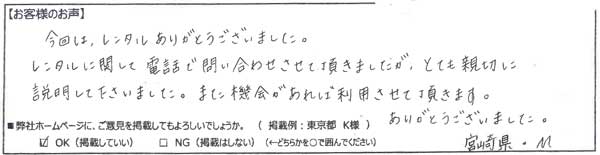 【お客様のお声】
今回は、レンタルありがとうございました。
レンタルに関して電話で問い合わせさせて頂きましたが、とても親切に
説明して下さいました。また機会があれば利用させて頂きます。
ありがとうございました。
■弊社ホームページに、ご意見を掲載してもよろしいでしょうか。（ 掲載例：東京都 K様 ）
☑ OK（掲載していい） □ NG（掲載はしない）（←どちらかを○で囲んでください）
宮崎県・M